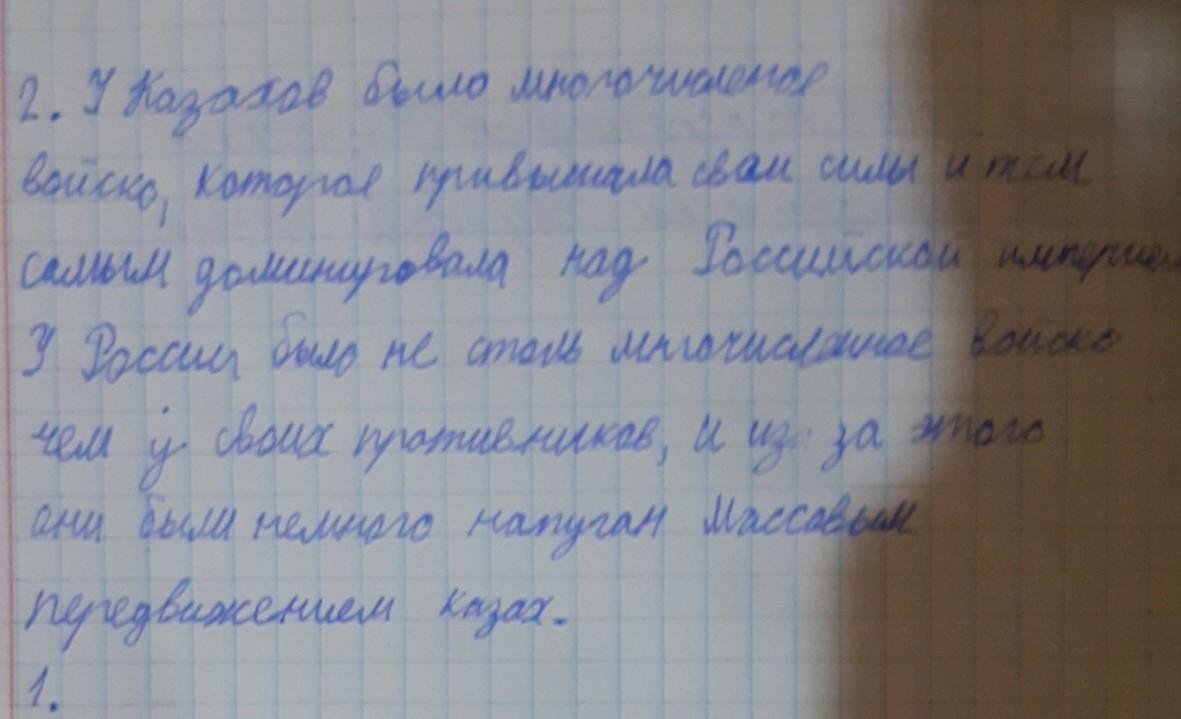 2. У Казахов было многочисленое
войско, которое привышала свои силы и тем
самым доминировала над Российской империей
У России было не столь многочисланное войско
чем у своих противников, и из за этого
они были немного напуган Массовым
передвижением казах.
1.